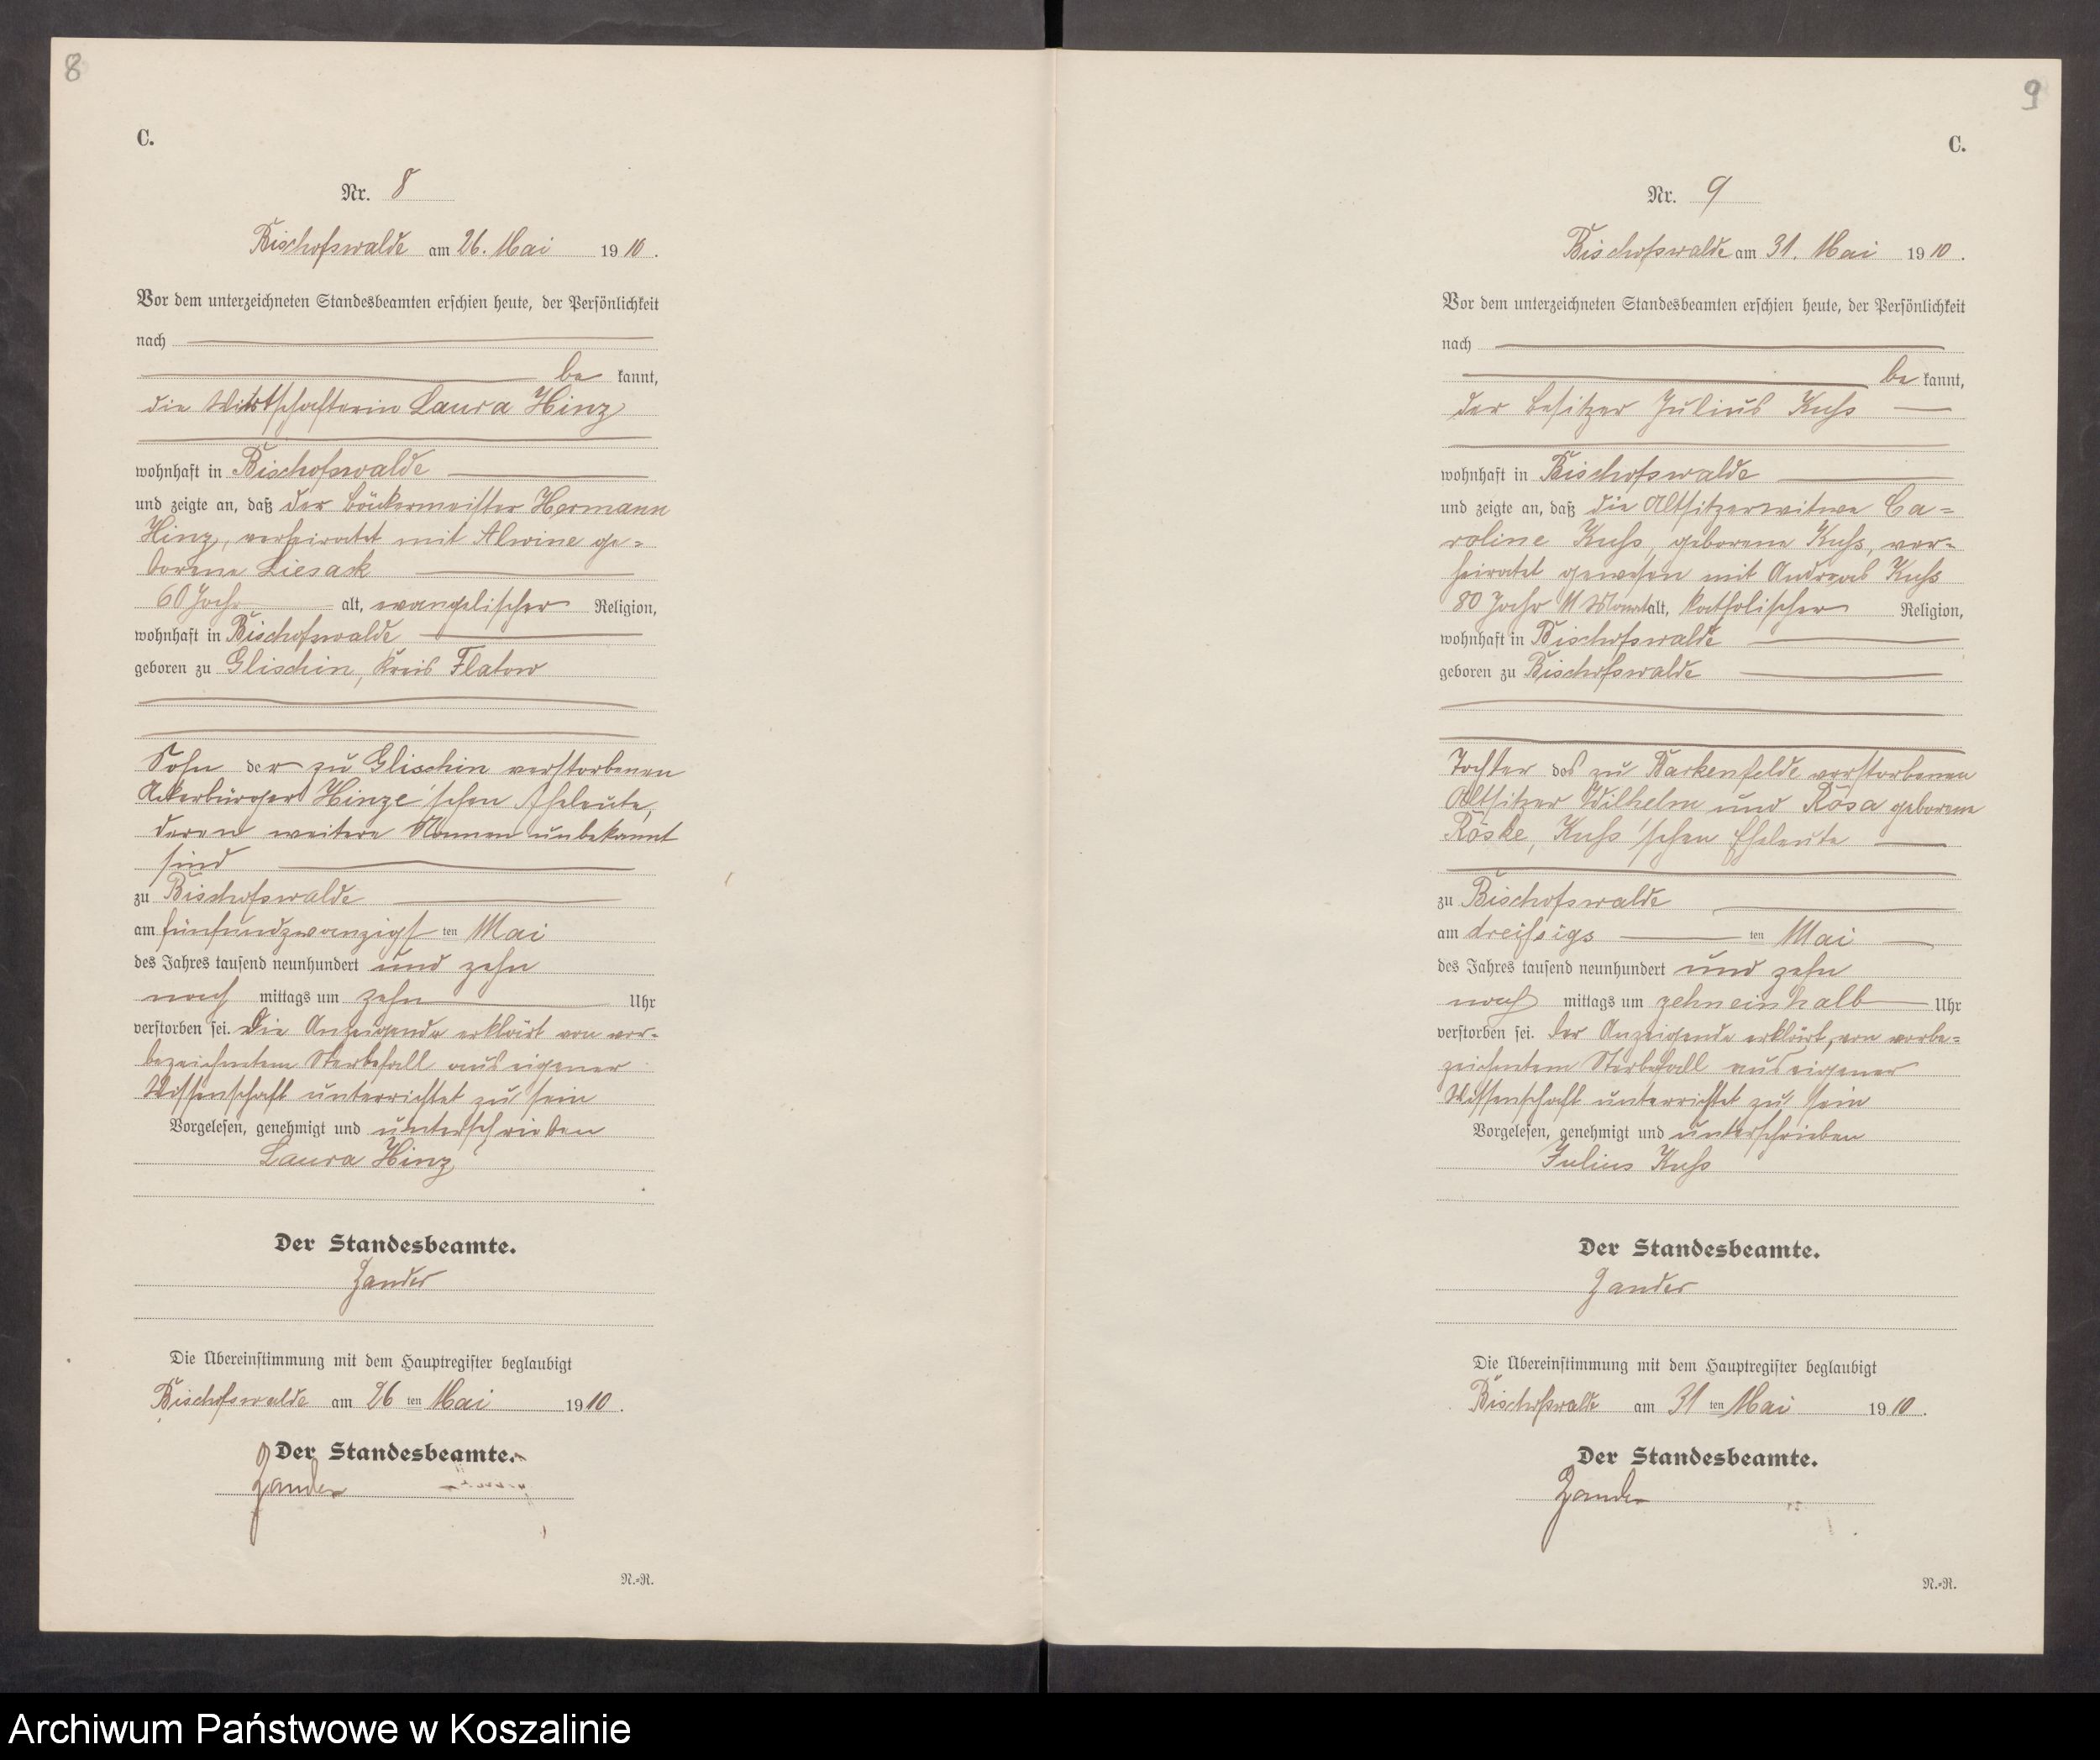 8
C.
Nr. 8
Bischofswalde am 26. Mai 1910.
Vor dem unterzeichneten Standesbeamten erschien heute, der Persönlichkeit
nach
be kannt,
die Wirtschafterin Laura Hinz
wohnhaft in Bischofswalde
und zeigte an, daß der Bäckermeister Hermann
Hinz, verheiratet mit Alwine ge=
borene Liesack
60 Jahr alt, evangelischer Religion,
wohnhaft in Bischofswalde
geboren zu Glischin, Kreis Flatow
Sohn der zu Glischin verstorbenen
Ackerbürger Hinze'schen Eheleute,
deren weitere Namen unbekannt
sind
zu Bischofswalde
am fünfundzwanzigsten Mai
des Jahres tausend neunhundert und zehn
nach mittags um zehn Uhr
verstorben sei. Die Anzeigende erklärt von vor-
bezeichnetem Sterbefall aus eigener
Wissenschaft unterrichtet zu sein
Vorgelesen, genehmigt und unterschrieben
Laura Hinz
Der Standesbeamte.
Zander
Die Übereinstimmung mit dem Hauptregister beglaubigt
Bischofswalde am 26 ten Mai 1910.
Der Standesbeamte.
Zander
N.=R.
9
C.
Nr. 9
Bischofswalde am 31. Mai 1910.
Vor dem unterzeichneten Standesbeamten erschien heute, der Persönlichkeit
nach
be kannt,
der Besitzer Julius Kuß
wohnhaft in Bischofswalde
und zeigte an, daß die Altsitzerwitwe Ca=
roline Kuß, geborene Kuß, ver-
heiratet gewesen mit Andreas Kuß
80 Jahr 11 Monat alt, katholischer Religion,
wohnhaft in Bischofswalde
geboren zu Bischofswalde
Tochter des zu Barkenfelde verstorbenen
Altsitzer Wilhelm und Rosa geborene
Röske, Kuß'schen Eheleute
zu Bischofswalde
am dreißigsten Mai
des Jahres tausend neunhundert und zehn
nach mittags um zehneinhalb Uhr
verstorben sei. Der Anzeigende erklärt, von vorbe=
zeichnetem Sterbefall aus eigener
Wissenschaft unterrichtet zu sein
Vorgelesen, genehmigt und unterschrieben
Julius Kuß
Der Standesbeamte.
Zander
Die Übereinstimmung mit dem Hauptregister beglaubigt
Bischofswalde am 31 ten Mai 1910.
Der Standesbeamte.
Zander
N.=R.
Archiwum Państwowe w Koszalinie